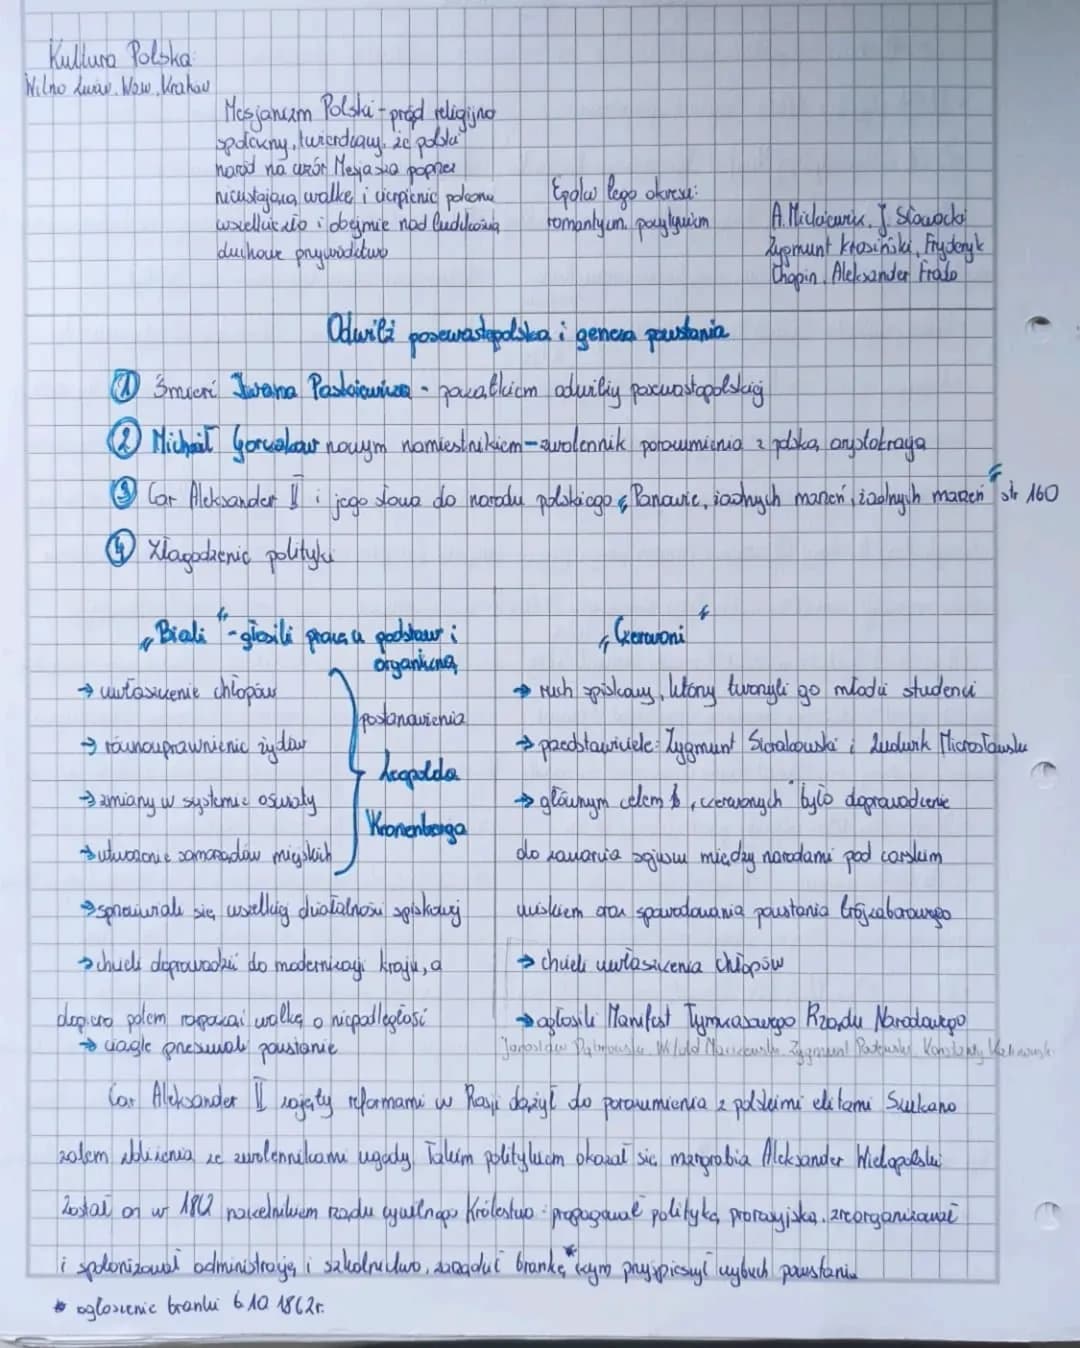 Kultura Polska
Wilno Lwów Waw. Kraków
Mesjanizm Polski - prąd religijno
społeczny, twierdzący, że polski
naród na wzór Mesjasza poprzez
nieustającą walkę i cierpienie pokona
wszelkie zło i obejmie nad ludzkością
duchowe przywództwo
Epoka tego okresu:
romantyzm, pozytywizm
A. Mickiewicz, J. Słowacki
Zygmunt Krasiński, Fryderyk
Chopin, Aleksander Fredro
Odwilż posewastopolska i geneza powstania
① Śmierć Iwana Paskiewicza - początkiem odwilży posewastopolskiej
② Michaił Gorczakow nowym namiestnikiem - zwolennik porozumienia z polską arystokracją
③ Car Aleksander II i jego słowa do narodu polskiego „Panowie, żadnych marzeń, żadnych marzeń" str 160
④ Złagodzenie polityki
„Biali" - głosili pracę u podstaw i
organiczną
→ uwłaszczenie chłopów
→ równouprawnienie żydów
→ zmiany w systemie oświaty
→ utworzenie samorządów miejskich
postanowienia
Leopolda
Kronenberga
→ sprzeciwiali się wszelkiej działalności spiskowej
→ chcieli doprowadzić do modernizacji kraju, a
dopiero potem rozpocząć walkę o niepodległość
→ ciągle przesuwali powstanie
„Czerwoni"
→ ruch spiskowy, który tworzyli go młodzi studenci
→ przedstawiciele: Zygmunt Sierakowski i Ludwik Mierosławski
→ głównym celem „czerwonych" było doprowadzenie
do zawarcia sojuszu między narodami pod carskim
uciskiem oraz spowodowania powstania trójzaborowego
→ chcieli uwłaszczenia chłopów
→ ogłosili Manifest Tymczasowego Rządu Narodowego
Jarosław Dąbrowski, Zygmunt Padlewski, Konstanty Kalinowski
Car Aleksander II zajęty reformami w Rosji dążył do porozumienia z polskimi elitami Szukano
zatem zbliżenia ze zwolennikami ugody. Takim politykiem okazał się margrabia Aleksander Wielopolski
Został on w 1862 naczelnikiem rządu cywilnego Królestwa: propagował politykę prorosyjską, zreorganizował
i spolonizował administrację i szkolnictwo, zarządził brankę* czym przyspieszył wybuch powstania
* ogłoszenie branki 6.10.1862r.